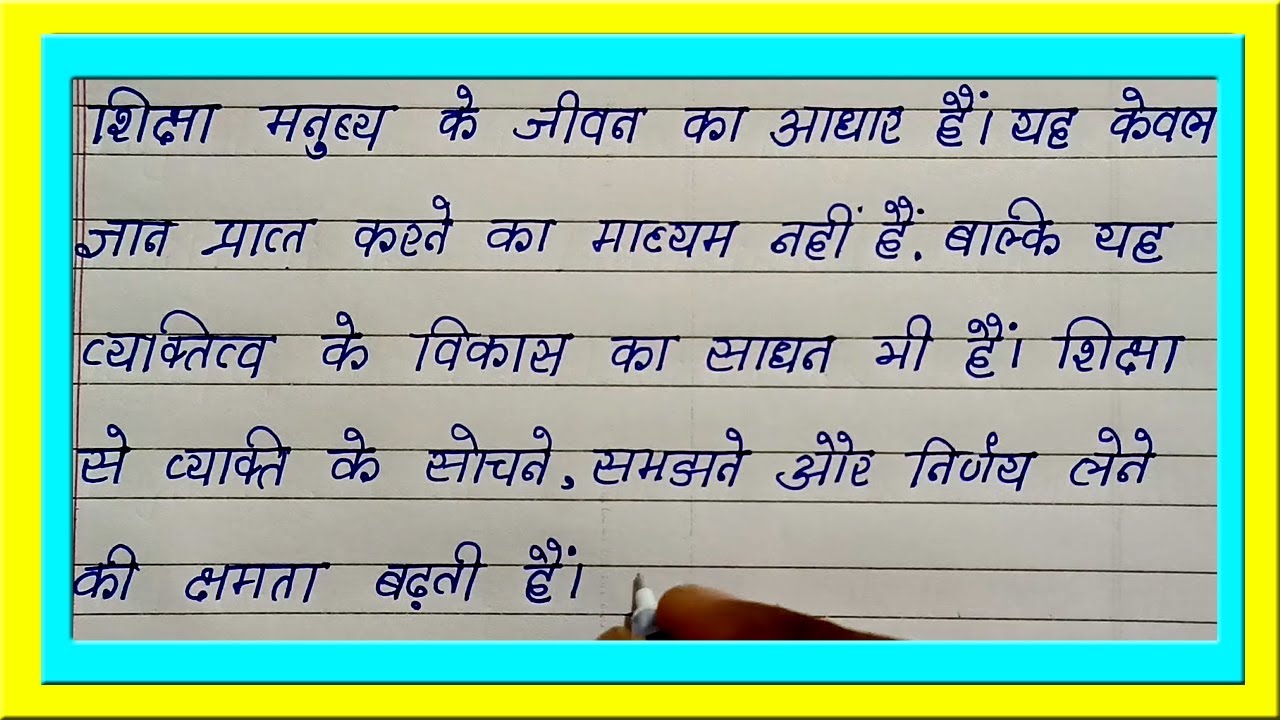 शिक्षा मनुष्य के जीवन का आधार हैं। यह केवल
ज्ञान प्राप्त करने का माध्यम नहीं हैं. बाल्कि यह
व्याक्तित्व के विकास का साधन भी हैं। शिक्षा
से व्याक्ति के सोचने, समझने और निर्णय लेने
की क्षमता बढ़ती हैं।